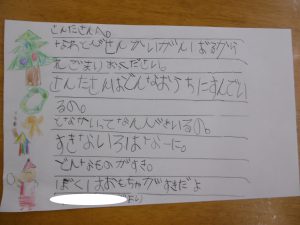 さんたさんへ。
なわとびさんかいがんばるから
えごまりおください。
さんたさんはどんなおうちにすんでい
るの。
となかいってなんびきいるの。
すきないろはなーに。
どんなものがすき。
ぼくはおもちゃがすきだよ
より